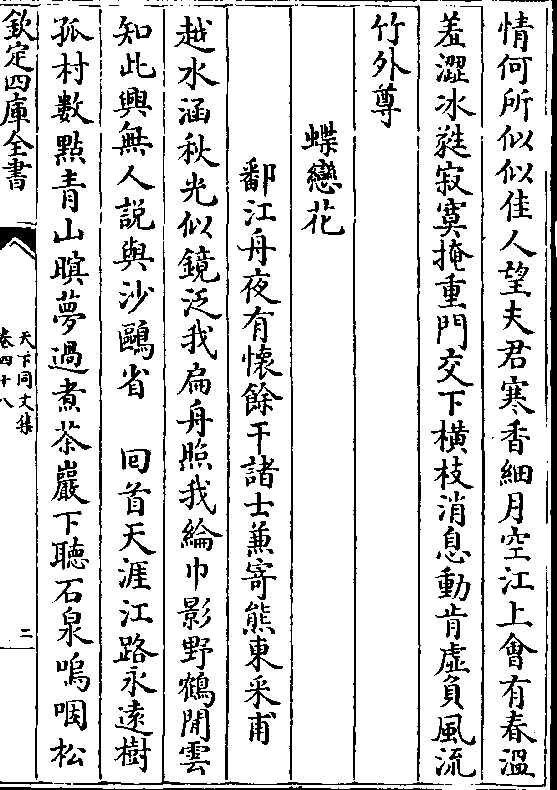 情何所似似佳人望夫君寒香細月空江上會有春溫
羞澀冰蕤寂寞掩重門交下橫枝消息動肯虛負風流
竹外尊
蝶戀花
鄱江舟夜有懷餘干諸士兼寄熊東采甫
越水涵秋光似鏡泛我扁舟照我綸巾影野鶴閒雲
知此興無人説與沙鷗省　回首天涯江路永遠樹
孤村數點青山暝夢過煮茶巖下聽石泉嗚咽松
欽定四庫全書
天下同文集
卷四十八
二